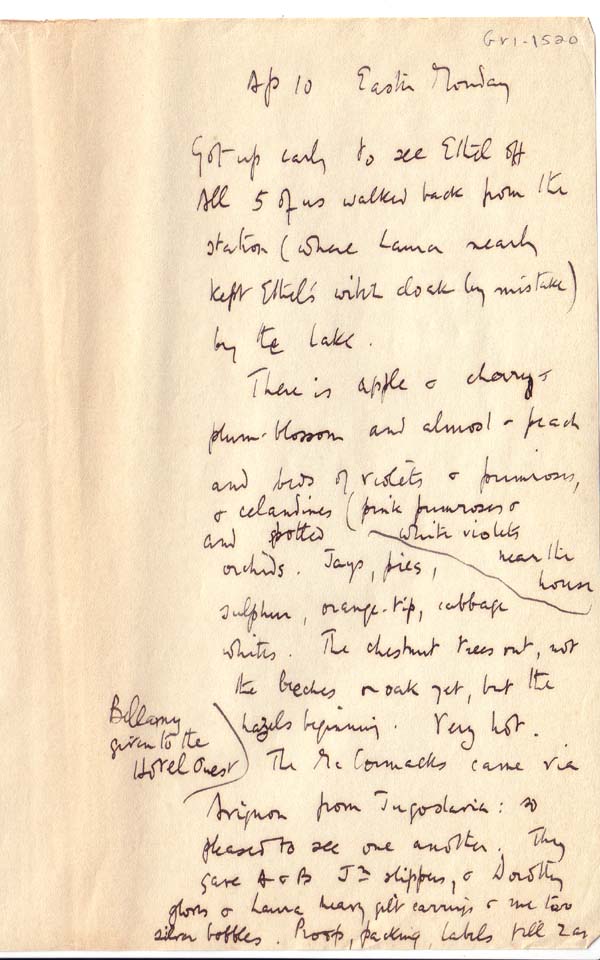 Gr1-1520
Ap 10 Easter Monday
Got up early to see Ethel off
All 5 of us walked back from the
station (where Laura nearly
kept Ethel's witch cloak by mistake)
by the lake.
There is apple & cherry &
plum-blossom and almost & peach
and beds of violets & primroses,
& celandines (pink primroses &
white violets
near the
house
and spotted
orchids. Jays, pies,
sulphur, orange-tip, cabbage
whites. The chestnut trees out, not
the beeches or oak yet, but the
hazels beginning. Very hot.
Bellamy
given to the
Hotel Ouest)
The McCormacks came via
Avignon from Jugoslavia: so
pleased to see one another. They
gave A & B Jn slippers, & Dorothy
gloves & Laura heavy gilt earrings & me two
silver bobbles. Proofs, packing, labels till 2 am